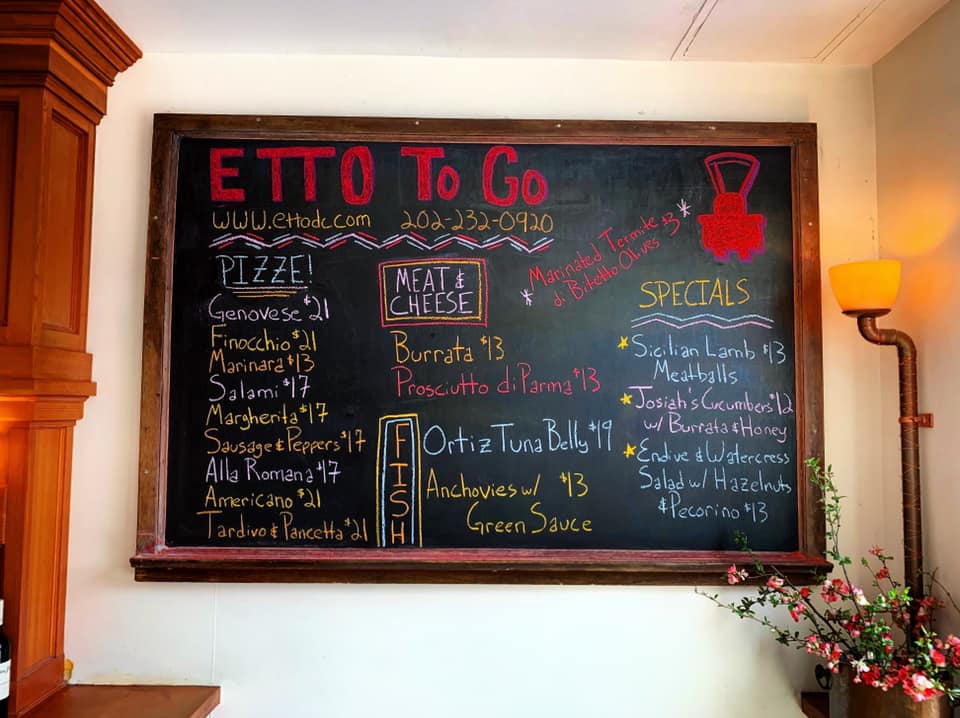 ETTO TO GO
www.ettodc.com 202-232-0920
PIZZE!
Genovese $21
Finocchio $21
Marinara $13
Salami $17
Margherita $17
Sausage & Peppers $17
Alla Romana $17
Americano $21
Tardivo & Pancetta $21
MEAT &
CHEESE
Burrata $13
Prosciutto di Parma $13
FISH
Ortiz Tuna Belly $19
Anchovies w/ $13
Green Sauce
* Marinated Termite $3 *
di Bitetto Olives
SPECIALS
Sicilian Lamb $13
Meatballs
Josiah's Cucumbers $12
w/ Burrata & Honey
Endive & Watercress
Salad w/ Hazelnuts
& Pecorino $13